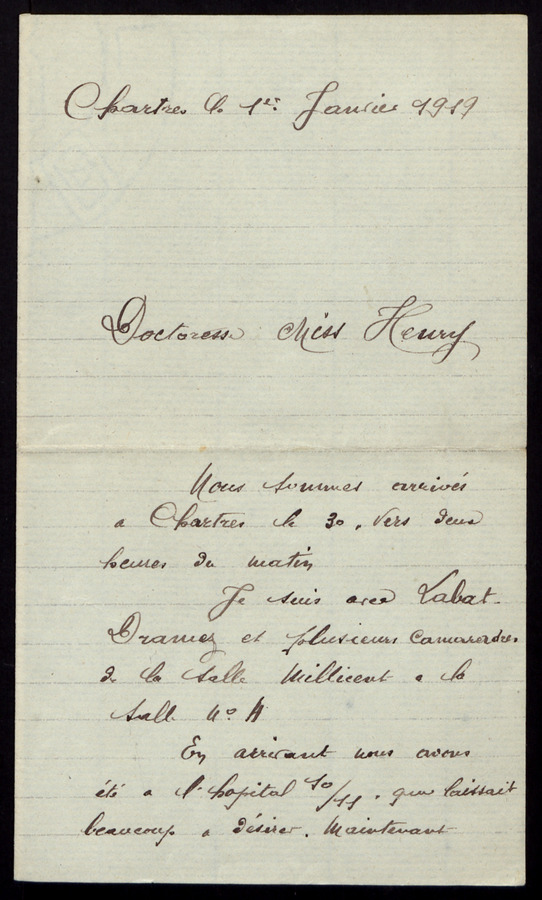 Chartres le 1er Janvier 1919
Doctoresse Miss Henry
Nous sommes arrivés
a Chartres le 30, vers deux
heures du matin
Je suis avec Labat-
Dramez et plusieurs camarades
de la salle Millicent a la
salle No
En arrivant nous avons
été a l'hopital 10/11, que laissait
beaucoup a désirer. Maintenant